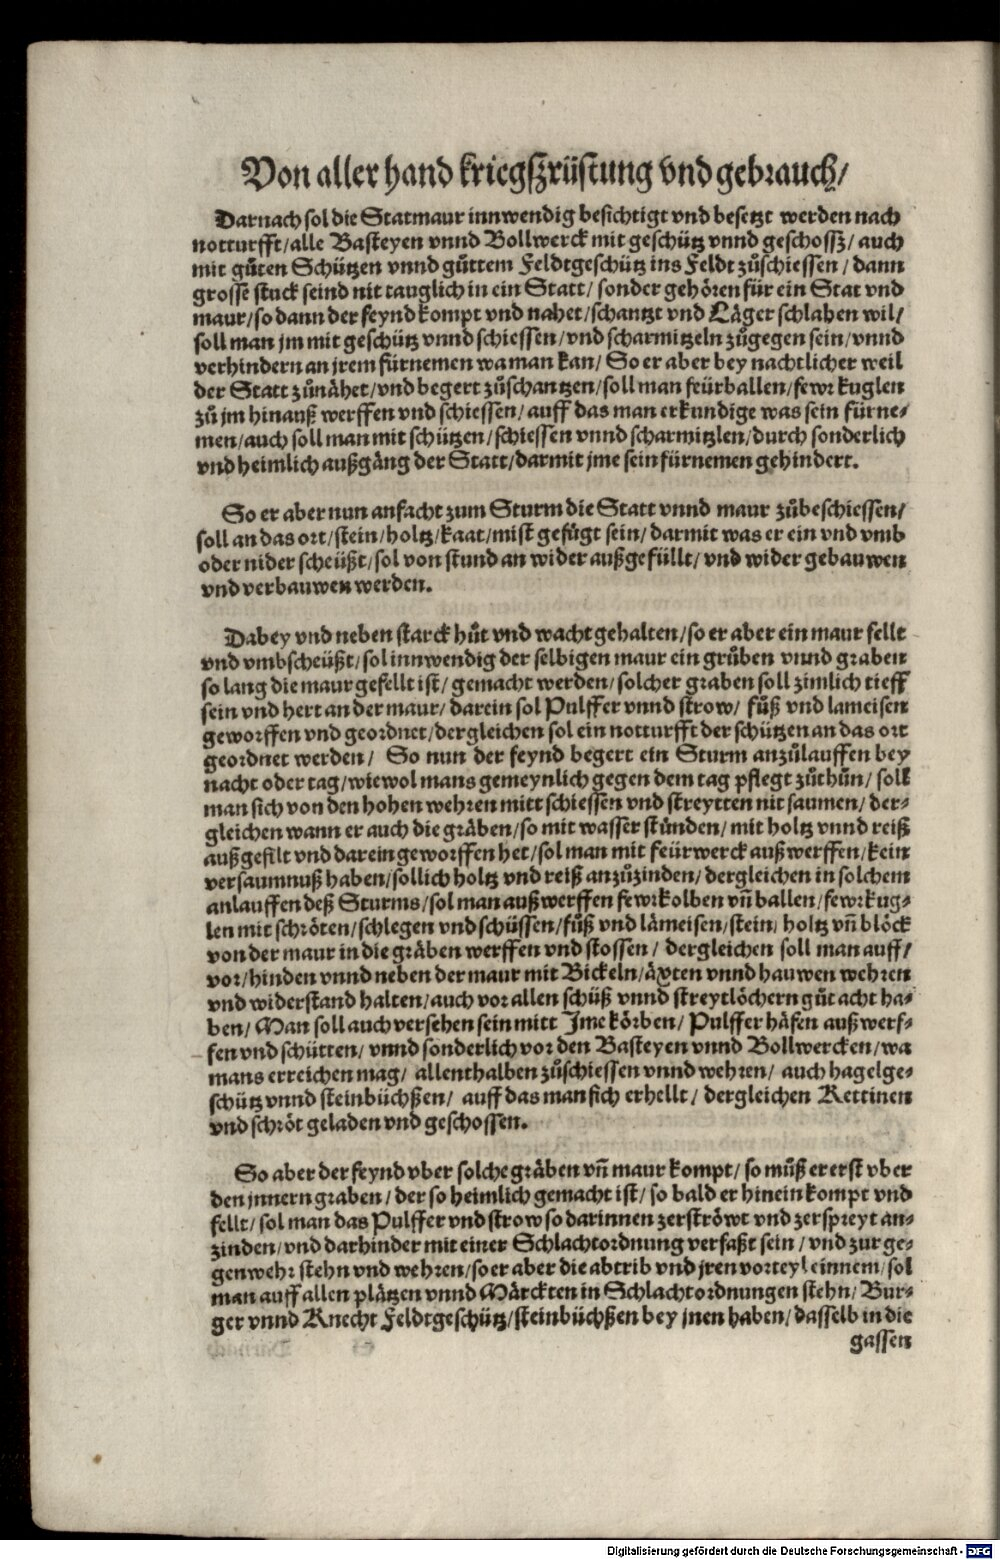 Von aller hand kriegſzrüſtung vnd gebrauch/
Darnach ſol die Statmaur innwendig beſichtigt vnd beſetzt werden nach
notturfft/alle Baſteyen vnnd Bollwerck mit geſchütz vnnd geſchoſſz/ auch
mit gůten Schützen vnnd gůttem Feldtgeſchütz ins Feldt zůſchieſſen / dann
groſſe ſtuck ſeind nit tauglich in ein Statt/ ſonder gehören für ein Stat vnd
maur/ſo dann der feynd kompt vnd nahet/ſchantzt vnd Läger ſchlahen wil/
ſoll man jm mit geſchütz vnnd ſchieſſen/vnd ſcharmitzeln zůgegen ſein/vnnd
verhindern an jrem fürnemen wa man kan/ So er aber bey nachtlicher weil
der Statt zůnähet/vnd begert zůſchantzen/ſoll man feürballen/fewrkuglen
zů jm hinauß werffen vnd ſchieſſen/ auff das man erkundige was ſein fürne-
men/auch ſoll man mit ſchützen/ſchieſſen vnnd ſcharmitzlen/durch ſonderlich
vnd heimlich außgäng der Statt/darmit jme ſein fürnemen gehindert.
So er aber nun anfacht zum Sturm die Statt vnnd maur zůbeſchieſſen/
ſoll an das ort/ſtein/holtz/kaat/miſt gefůgt ſein/ darmit was er ein vnd vmb
oder nider ſcheüßt/ſol von ſtund an wider außgefüllt/ vnd wider gebauwen
vnd verbauwen werden.
Dabey vnd neben ſtarck hůt vnd wacht gehalten/ſo er aber ein maur fellt
vnd vmbſcheüßt/ſol innwendig der ſelbigen maur ein grůben vnnd graben
ſo lang die maur gefellt iſt/ gemacht werden/ſolcher graben ſoll zimlich tieff
ſein vnd hert an der maur/ darein ſol Pulffer vnnd ſtrow/ fůß vnd lameiſen
geworffen vnd geordnet/dergleichen ſol ein notturfft der ſchützen an das ort
geordnet werden/ So nun der feynd begert ein Sturm anzůlauffen bey
nacht oder tag/wiewol mans gemeynlich gegen dem tag pflegt zůthůn/ ſoll
man ſich von den hohen wehren mitt ſchieſſen vnd ſtreytten nit ſaumen/ der-
gleichen wann er auch die gräben/ſo mit waſſer ſtünden/mit holtz vnnd reiß
außgefilt vnd darein geworffen het/ſol man mit feürwerck außwerffen/kein
verſaumnuß haben/ſollich holtz vnd reiß anzůzinden/ dergleichen in ſolchem
anlauffen deß Sturms/ſol man außwerffen fewrkolben vñ ballen/fewrkug-
len mit ſchröten/ſchlegen vnd ſchüſſen/fůß vnd lämeiſen/ſtein/ holtz vñ blöck
von der maur in die gräben werffen vnd ſtoſſen / dergleichen ſoll man auff/
vor/hinden vnnd neben der maur mit Bickeln/äxten vnnd hauwen wehren
vnd widerſtand halten/auch vor allen ſchüß vnnd ſtreytlöchern gůt acht ha-
ben/ Man ſoll auch verſehen ſein mitt Imekörben/ Pulffer häfen außwerf-
fen vnd ſchütten/ vnnd ſonderlich vor den Baſteyen vnnd Bollwercken/wa
mans erreichen mag/ allenthalben zůſchieſſen vnnd wehren/ auch hagelge-
ſchütz vnnd ſteinbüchßen/ auff das man ſich erhellt/ dergleichen Kettinen
vnd ſchröt geladen vnd geſchoſſen.
So aber der feynd vber ſolche gräben vñ maur kompt/ ſo můß er erſt vber
den jnnern graben/ der ſo heimlich gemacht iſt/ ſo bald er hinein kompt vnd
fellt/ ſol man das Pulffer vnd ſtrow ſo darinnen zerſtröwt vnd zerſpreyt an-
zinden/vnd darhinder mit einer Schlachtordnung verfaßt ſein / vnd zur ge-
genwehr ſtehn vnd wehren/ſo er aber die abtrib vnd jren vorteyl einnem/ſol
man auff allen plätzen vnnd Märckten in Schlachtordnungen ſtehn/ Bur-
ger vnnd Knecht Feldtgeſchütz/ſteinbüchßen bey jnen haben/daſſelb in die
gaſſen
Digitalisierung gefördert durch die Deutsche Forschungsgemeinschaft - DFG